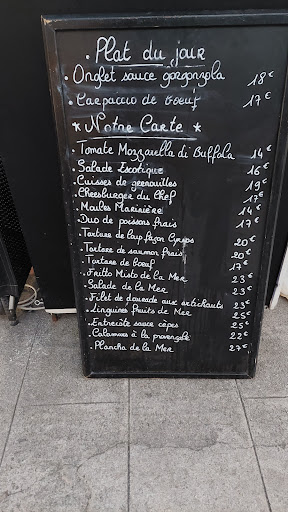 . Plat du jour
. Onglet sauce gorgonzola 18€
. Carpaccio de boeuf 17€
* Notre Carte *
. Tomate Mozzarella di Buffola 14€
. Salade Exotique 16€
. Cuisses de grenouilles 19€
. Cheesburger du Chef 17€
. Moules Marinière 14€
. Duo de poissons frais 17€
. Tartare de loup façon Gyros 20€
. Tartare de saumon frais 20€
. Tartare de boeuf 17€
. Fritto Misto de la Mer 23€
. Salade de la Mer 23€
. Filet de daurade aux artichauts 23€
. Linguines fruits de Mer 25€
. Entrecôte sauce cèpes 25€
. Calamars à la provençale 22€
. Plancha de la Mer 27€